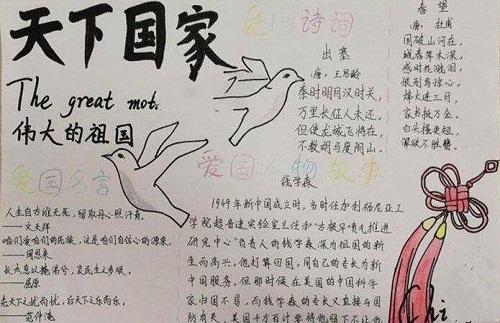 天下国家
The great mot.
伟大的祖国
爱国诗词
出塞
唐，王昌龄
秦时明月汉时关，
万里长征人未还。
但使龙城飞将在，
不教明月度阴山。
春望
唐，杜甫
国破山河在，
城春草木深。
感时花溅泪，
恨别鸟惊心。
烽火连三月，
家书抵万金。
白头搔更短，
浑欲不胜簪。
爱国名言
人生自古谁无死，留取丹心照汗青。
——文天祥
咱们爱咱们的民族，这是咱们自信心的源泉。
——周恩来
长太息以掩涕兮，哀民生之多艰。
——屈原
先天下之忧而忧，后天下之乐而乐。
——范仲淹
爱国人物故事
钱学森
1949年新中国成立时，当时任加利福尼亚工
学院超音速实验室主任和“古根罕喷气推进
研究中心”负责人的钱学森为祖国的新
生而高兴。他打算回国，用自己的专长为新
中国服务。但那时候在美国的中国科学
家归国不易，而钱学森的专长又直接与国
防有关，美国千方百计要将他留下不让
Chi